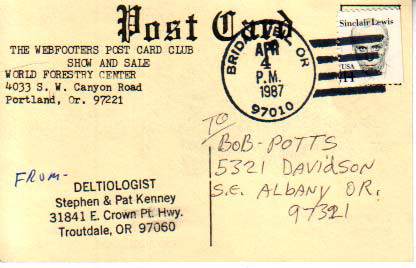 Post Card
THE WEBFOOTERS POST CARD CLUB
SHOW AND SALE
WORLD FORESTRY CENTER
4033 S. W. Canyon Road
Portland, Or. 97221
BRIDAL VEIL, OR
APR
4
P.M.
1987
97010
Sinclair Lewis
USA
14
TO
BOB-POTTS
5321 DAVIDSON
S.E. ALBANY OR.
97321
FROM-
DELTIOLOGIST
Stephen & Pat Kenney
31841 E. Crown Pt. Hwy.
Troutdale, OR 97060